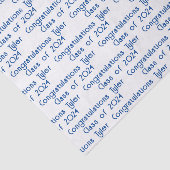 Congratulations Tyler
Class of 2024
Congratulations Tyler
Class of 2024
Congratulations Tyler
Class of 2024
Congratulations Tyler
Class of 2024
Congratulations Tyler
Class of 2024
Congratulations Tyler
Class of 2024
tions Tyler
of 2024
tions Tyler